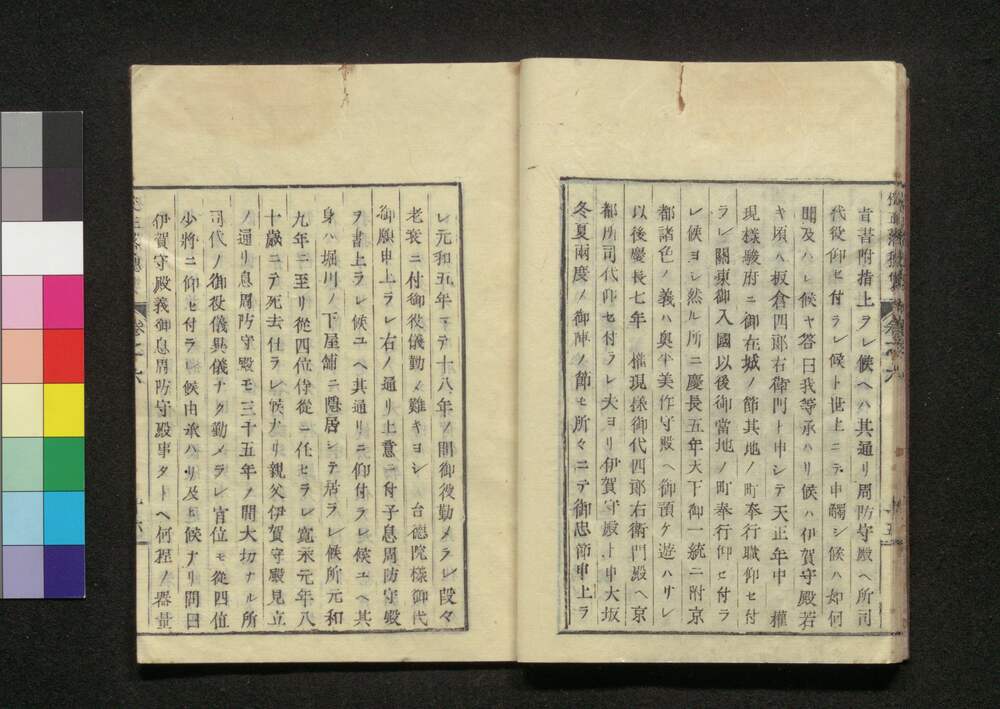 旨書附指上ヲレ候ヘハ其通リ周防守殿ヘ所司
代役仰セ付ラレ候ト世上ニテ申觸シ候ハ如何
聞及ハレ候ヤ答曰我等承ハリ候ハ伊賀守殿若
キ頃ハ板倉四郎右衛門ト申シテ天正年中 權
現樣駿府ニ御在城ノ節其地ノ町奉行職仰セ付
ラレ關東御入國以後御當地ノ町奉行仰セ付ラ
レ候ヨレ然ル所ニ慶長五年天下御一統ニ附京
都諸色ノ義ハ奥平美作守殿ヘ御預ケ遊ハサレ
以後慶長七年 權現樣御代四郎右衛門殿ヘ京
都所司代仰セ付ラレ夫ヨリ伊賀守殿ト申大坂
冬夏兩度ノ御陣ノ節モ所々ニテ御忠節申上ラ
レ元和五年マテ十八年ノ間御役勤メラレ段々
老衰ニ付御役儀勤メ難キヨシ 台德院樣御代
御願申上ラレ右ノ通リ上意ニ付子息周防守殿
ヲ書上ラレ候ユヘ其通リニ仰付ラレ候ユヘ其
身ハ堀川ノ下屋舗ニ隱居シテ居ラレ候所元和
九年ニ至リ從四位侍從ニ任セラレ寛永元年八
十歳ニテ死去仕ラレ候ナリ親父伊賀守殿見立
ノ通リ息周防守殿モ三十五年ノ間大切ナル所
司代ノ御役儀異儀ナク勤メラレ官位モ從四位
少將ニ仰セ付ラレ候由承ハリ及ヒ候ナリ問曰
伊賀守殿義御息周防守殿事タトヘ何程ノ器量